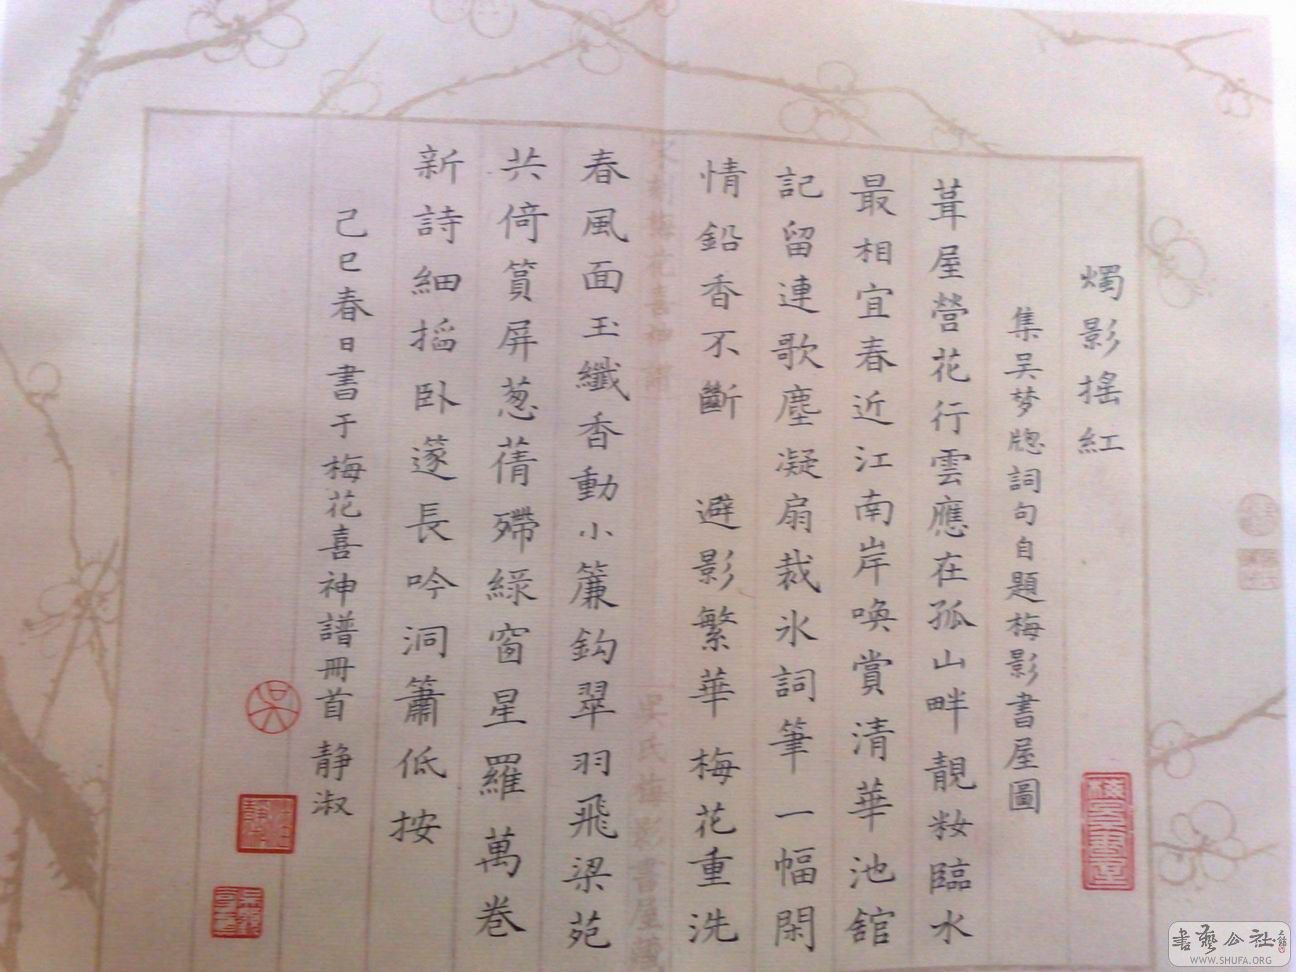 燭影搖紅
集吴梦牕詞句自題梅影書屋圖
葺屋營花行雲應在孤山畔靚妝臨水
最相宜春近江南岸喚賞清華池舘
記留連歌塵凝扇裁氷詞筆一幅閑
情鉛香不斷 避影繁華梅花重洗
春風面玉纖香動小簾鈎翠羽飛梁苑
共倚篔屏葱蒨殢綠窗星羅萬卷
新詩細搯卧邃長吟洞簫低按
己巳春日書于梅花喜神譜冊首 静淑
宋刻梅花喜神譜
吴氏梅影書屋
書藝公社
WWW.SHUFA.ORG